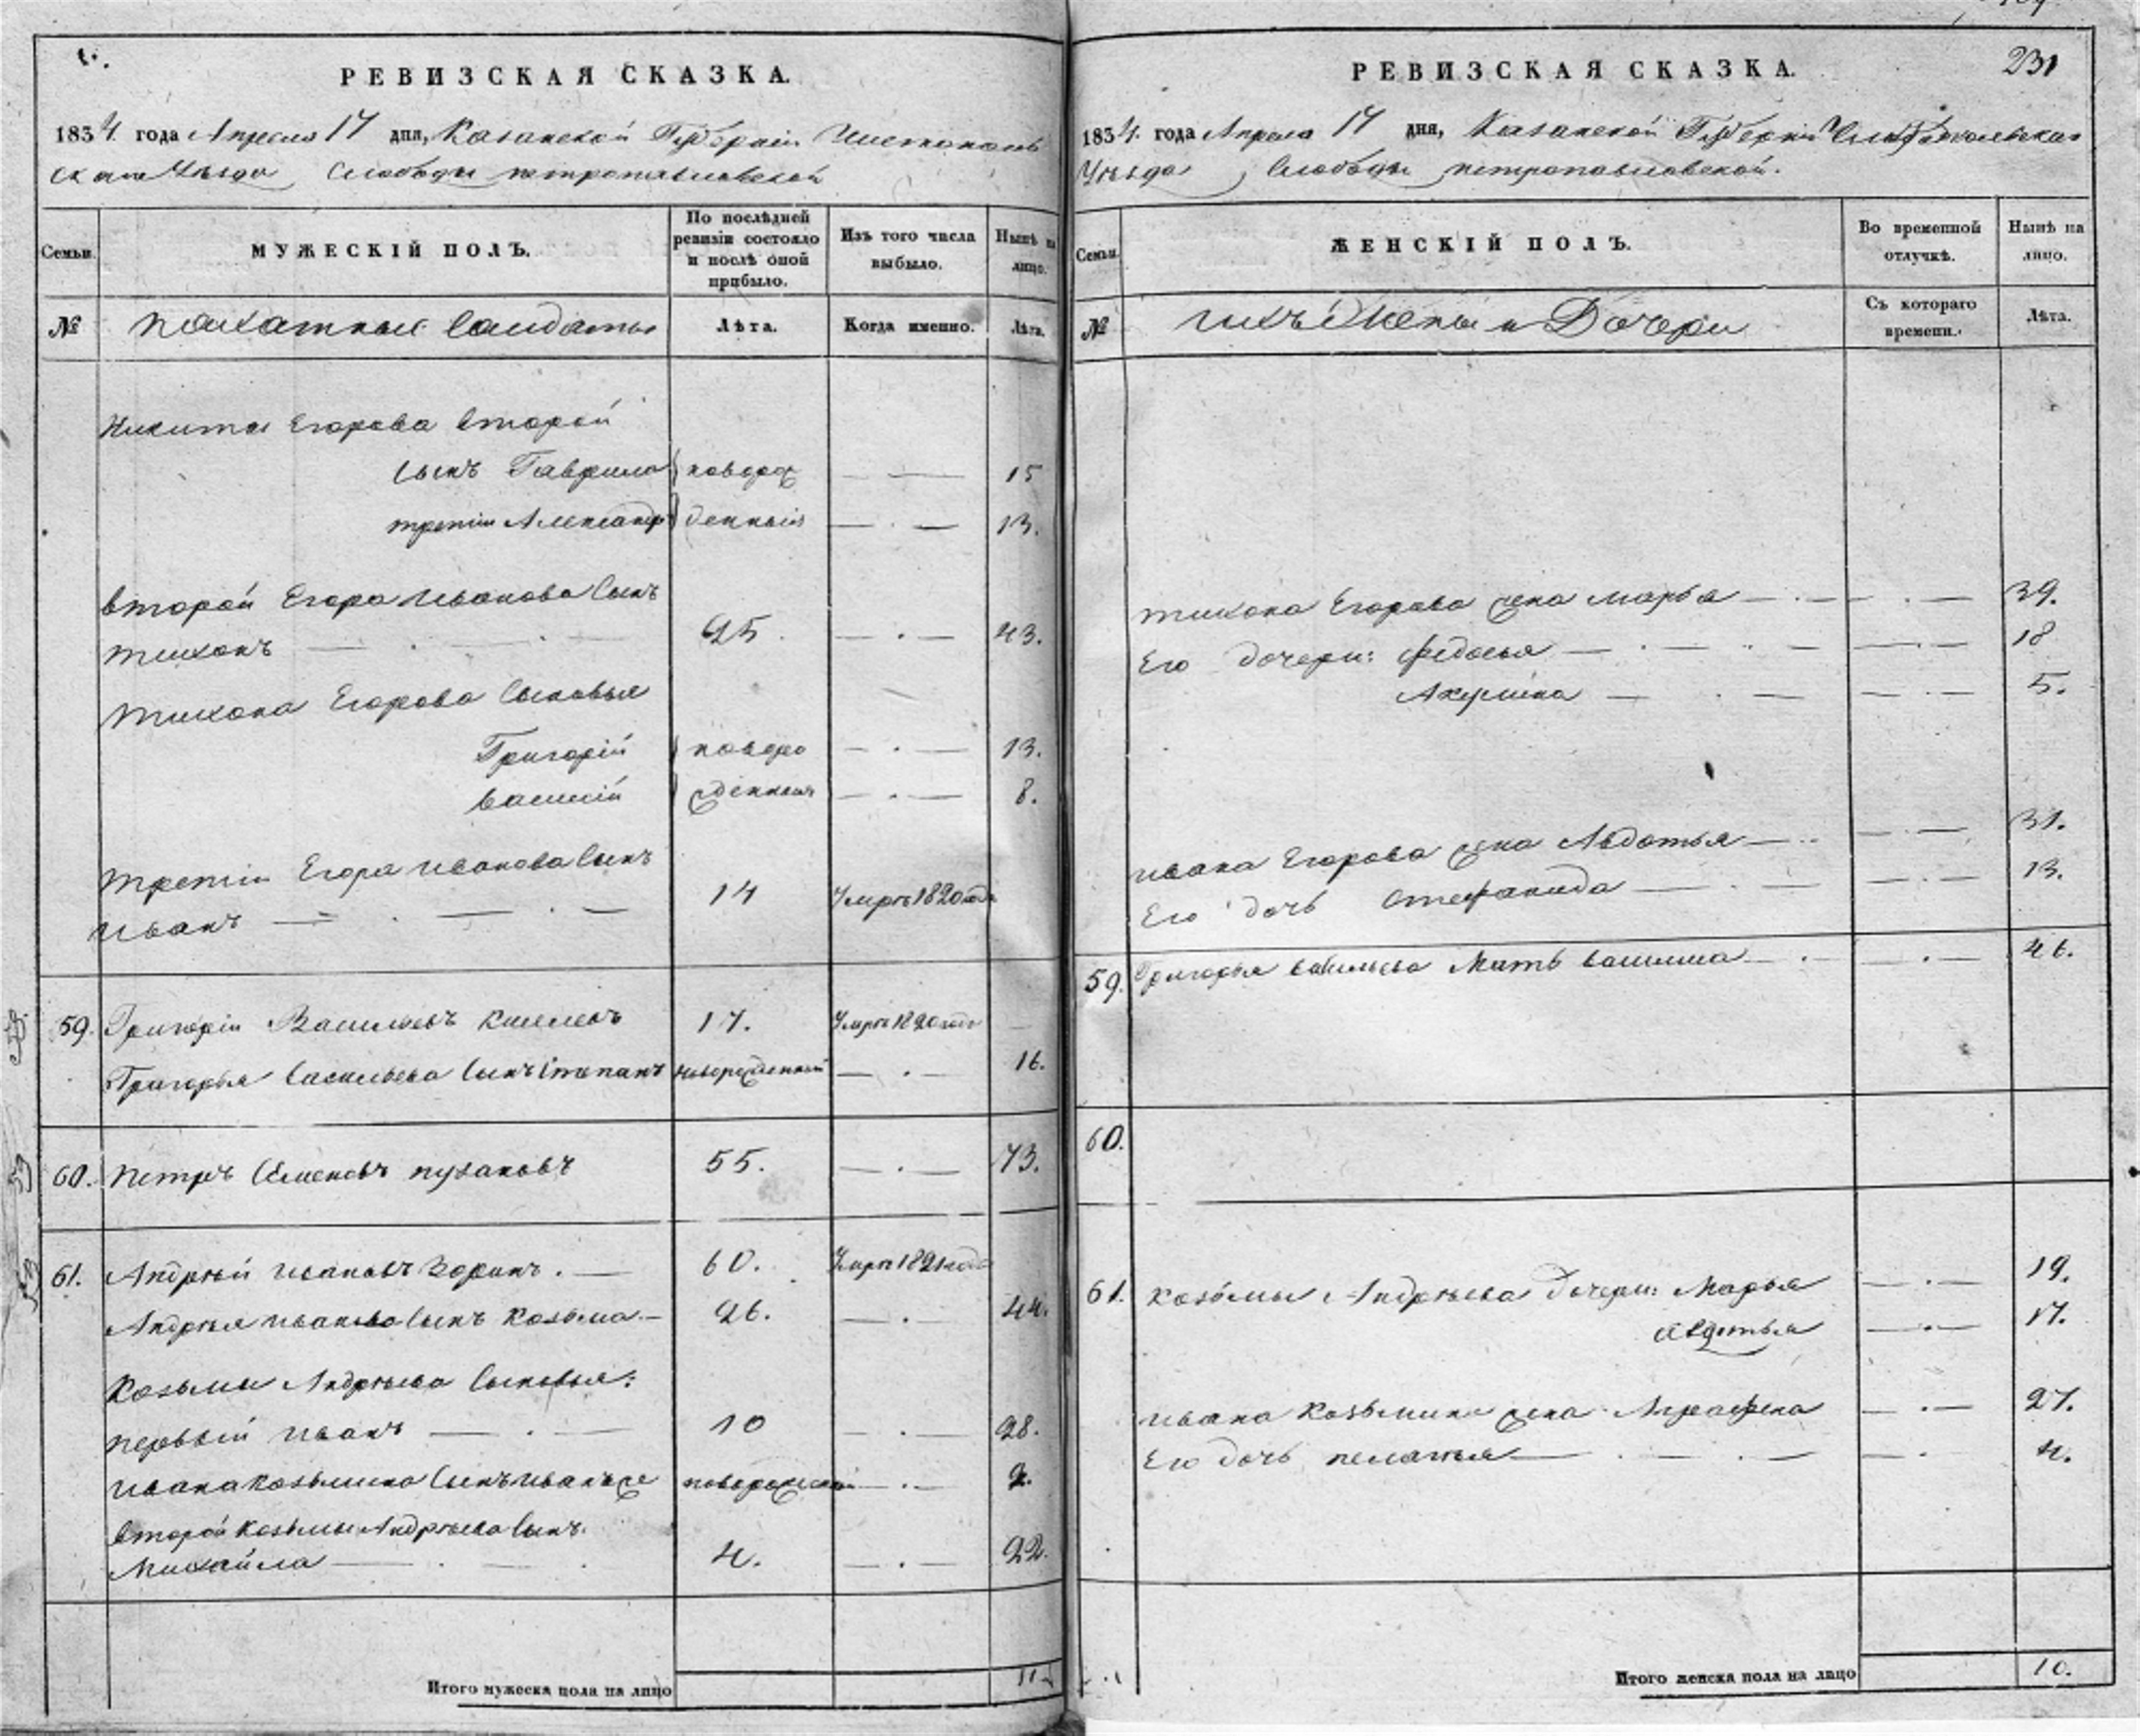 РЕВИЗСКАЯ СКАЗКА.
1834. года Апреля 17 дня, Казанской Губернiи Чистополь
скаго Уѣзда Слободы петропавловской
Семьи.
МУЖЕСКIЙ ПОЛЪ.
По послѣдней ревизiи состояло и послѣ оной прибыло.
Изъ того числа выбыло.
Нынѣ на лицо.
№
пахатныя Солдаты
Лѣта.
Когда именно.
Лѣта.
Никиты Егорова второй
Сынъ Гаврила новорож — — 15
третiй Александръ денныя — . — 13.
второй Егора Иванова Сынъ
тихонъ — . — 25. — . — 43.
Тихона Егорова Сыновья
Григорiй новоро — . — 13.
Василiй жденныя — . — 8.
Третiй Егора Иванова Сынъ
Иванъ — . — . — 14 Умръ 1820 года
59. Григорiй Васильевъ Киселевъ 17. Умръ 1820 года —
Григорья Васильева Сынъ Степанъ новорожденный — . — 16.
60. Петръ Семеновъ пузаковъ 55. — . — 73.
61. Андрѣй Ивановъ Зоринъ . — 60. Умръ 1821 года
Андрѣя Иванова Сынъ Козьма — 26. — . — 44.
Козьмы Андрѣева Сыновья:
первый Иванъ — . — 10 — . — 28.
Ивана Козьмина Сынъ Иванъ же новорожденной — . — 2.
второй Козьмы Андрѣева Сынъ
Михайла — . — . 4. — . — 22.
Итого мужеска пола на лицо 11
231
РЕВИЗСКАЯ СКАЗКА.
1834. года Апреля 17 дня, Казанской Губернiи Чистопольскаго
Уѣзда, Слободы петропавловской.
Семьи.
ЖЕНСКIЙ ПОЛЪ.
Во временной отлучкѣ.
Нынѣ на лицо.
№
ихъ Жены и Дочери
Съ котораго времени.
Лѣта.
тихона Егорова жена марья — . — . — 39.
Его дочери: федосья — . — . . — — . — 18
Акулина — . — — . — 5.
ивана Егорова жена Авдотья — . . — . — 31.
Его дочь Стефанида — . — — . — 13.
59. Григорья васильева Мать василиса — . — . — 46.
60.
61. Козьмы Андрѣева дочери: Марья — . — 19.
Авдотья — . — 17.
Ивана Козьмина жена Аграфена — . — 27.
Его дочь пелагья — . — . — — . 4.
Итого женска пола на лицо 10.